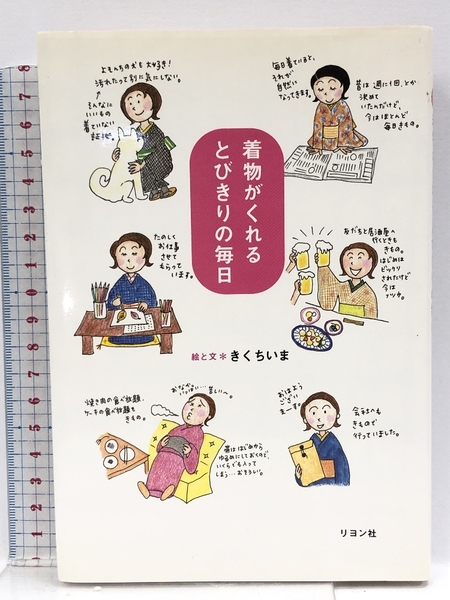 よそんちの犬も大好き!
汚れたって別に気にしない。
そんなに
いいもの
着ていない
証拠。
毎日着ていると、
それが
自然に
なってきます。
昔は週に1回、とか
決めて
いたのだけど、
今はほとんど
毎日きもの。
着物がくれる
とびきりの毎日
たのしく
お仕事
させて
もらって
います。
友だちと居酒屋へ
行くときも
きもの。
はじめは
ビックリ
されたけど
今は
フツウ。
絵と文*きくちいま
焼き肉の食べ放題、
ケーキの食べ放題も
きもの。
おなかいっぱい…苦しい〜。
帯ははじめから
ゆるめにしておくので、
いくらでも入って
しまう…おそろしい。
おはよう
ござい
まーす。
会社へも
きもので
行っていました。
リヨン社
8
7
6
5
4
3
2
1
0
1
2
3
4
5
6
7
8
9